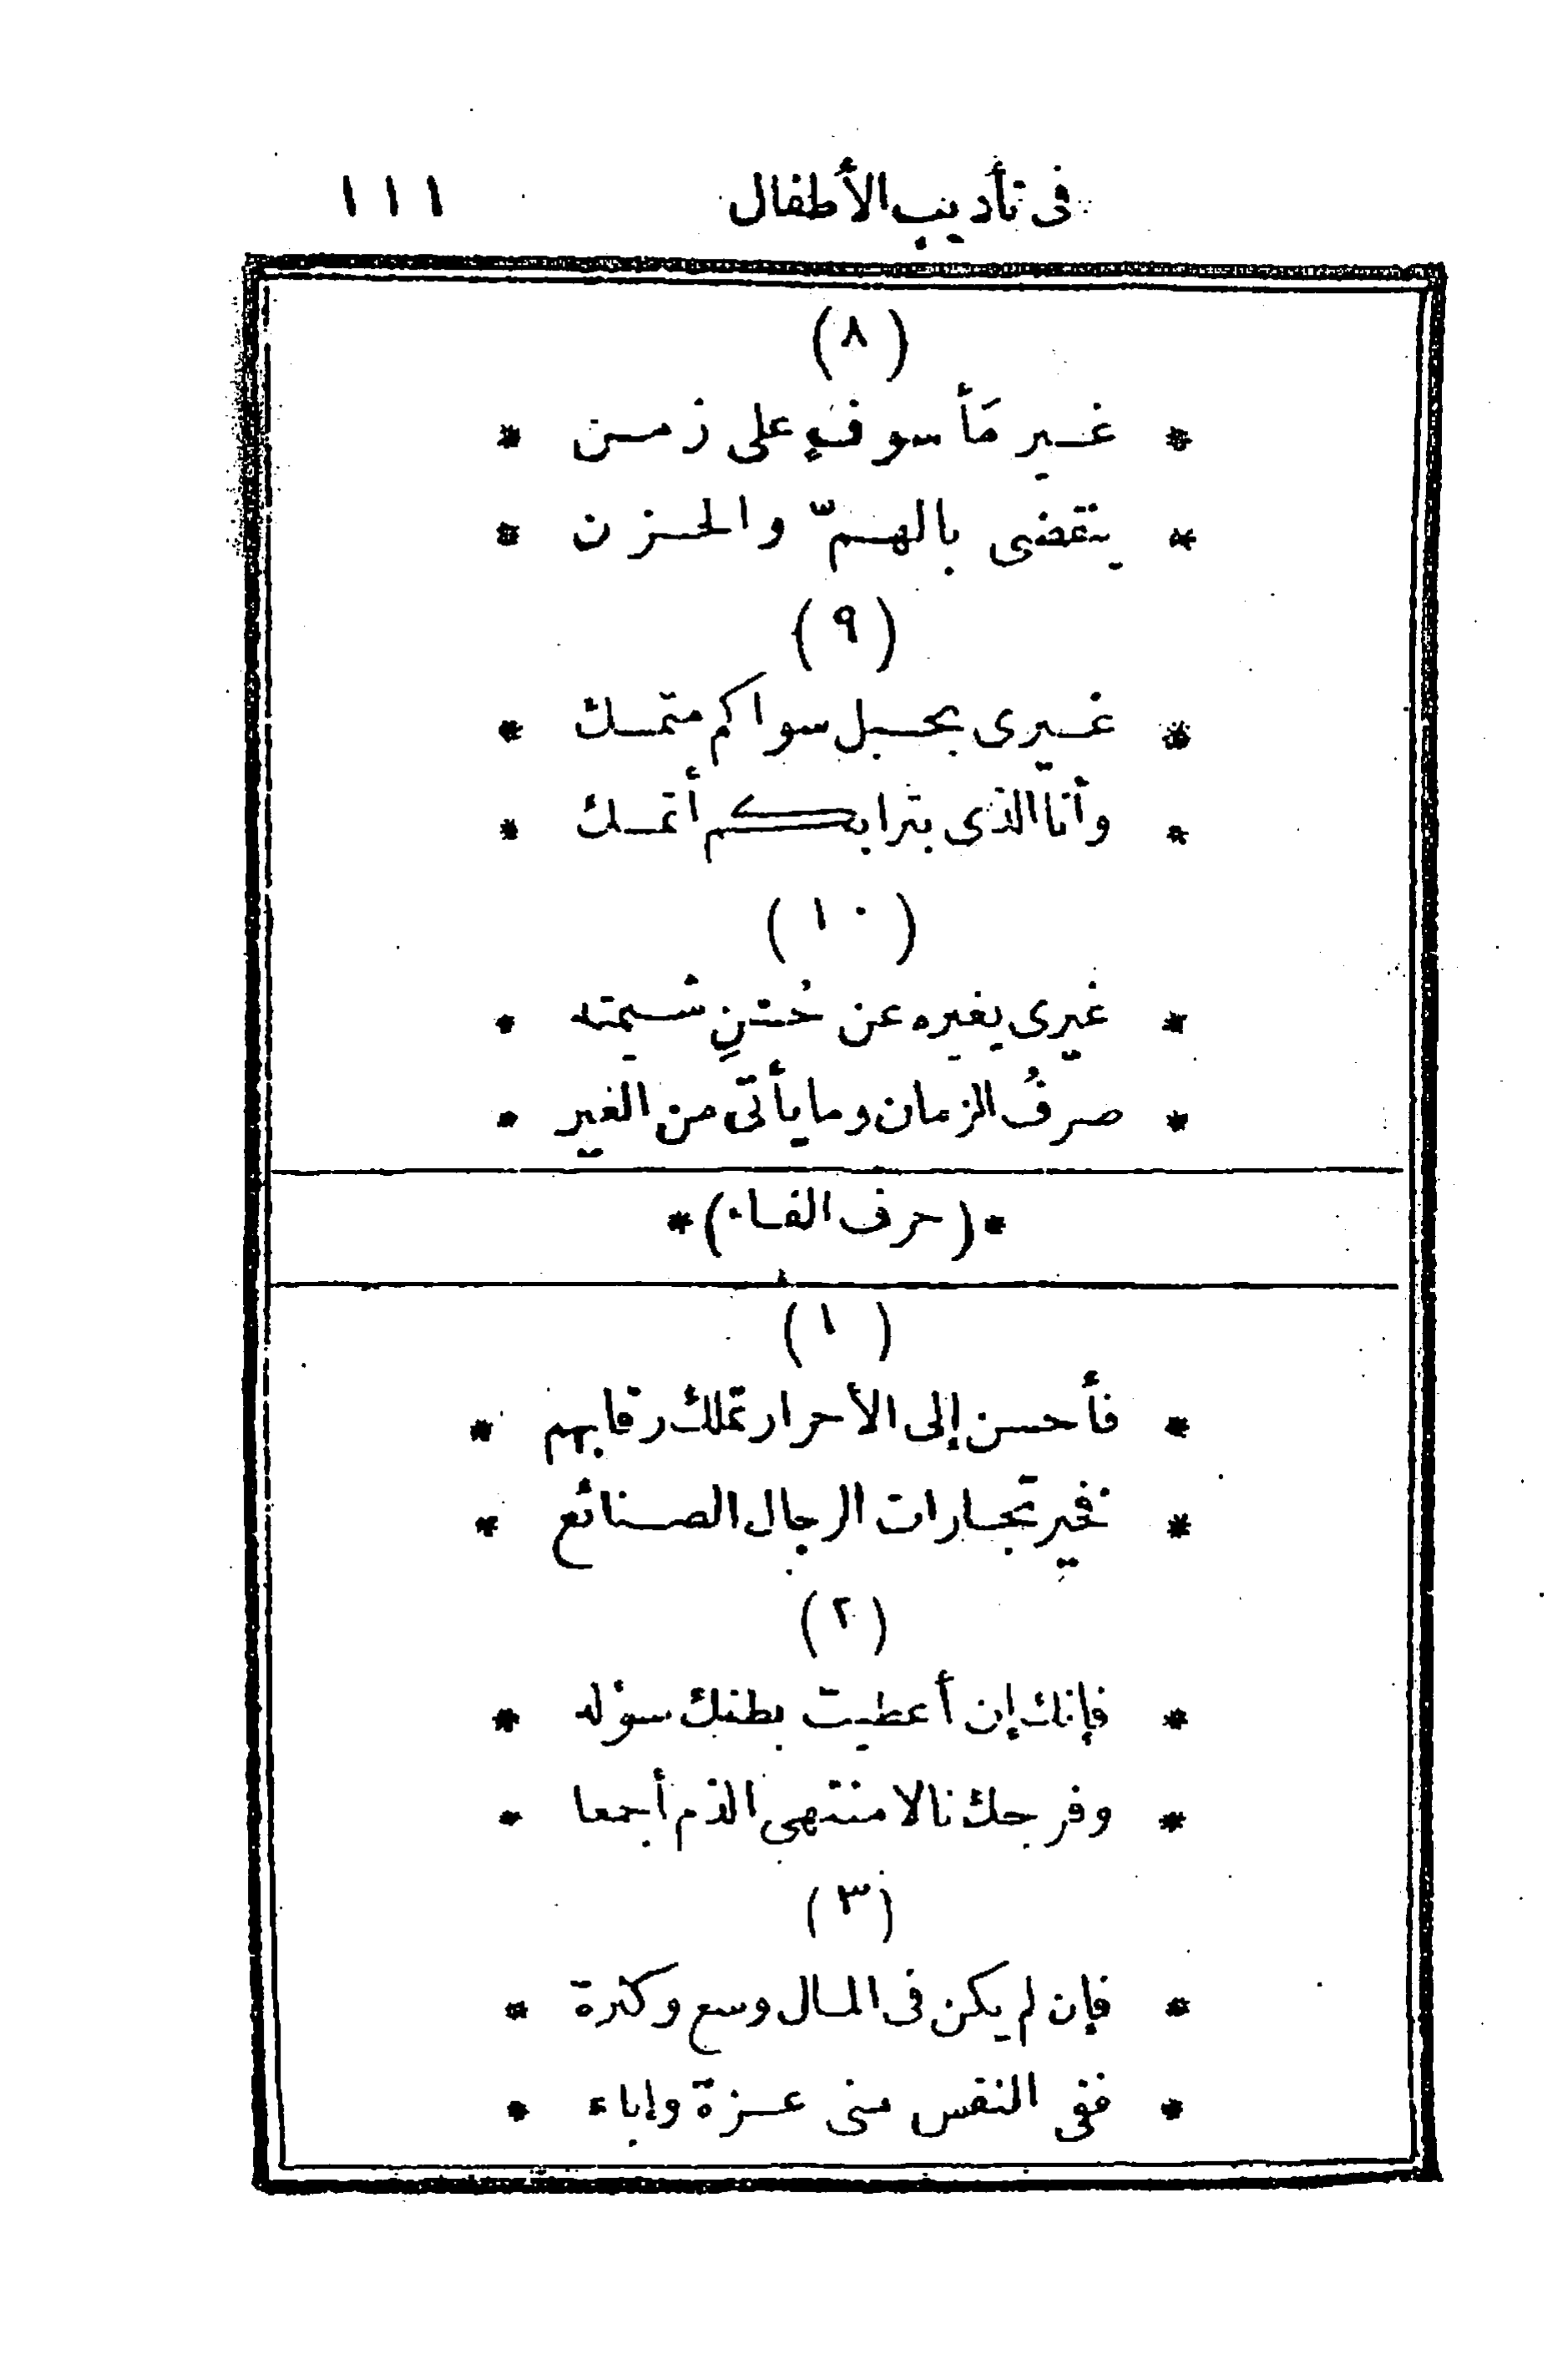 فى تأديب الأطفال ١١١
(٨)
* غير مَأسوفٍ على زمن *
* ينقضى بالهمّ والحزن *
(٩)
* غيرى بحبل سواكم متمسك *
* وأنا الذى بترابكم أتمسك *
(١٠)
* غيرى يغيره عن حُسنِ شيمته *
* صرفُ الزمان وما يأتى من الغير *
*(حرف الفاء)*
(١)
* فأحسن إلى الأحرار تملك رقابهم *
* فخير تجارات الرجال الصنائع *
(٢)
* فإنك إن أعطيت بطنك سؤله *
* وفرجك نالا منتهى الذم أجمعا *
(٣)
* فإن لم يكن فى المال وسع وكثرة *
* ففى النفس منى عزة وإباء *